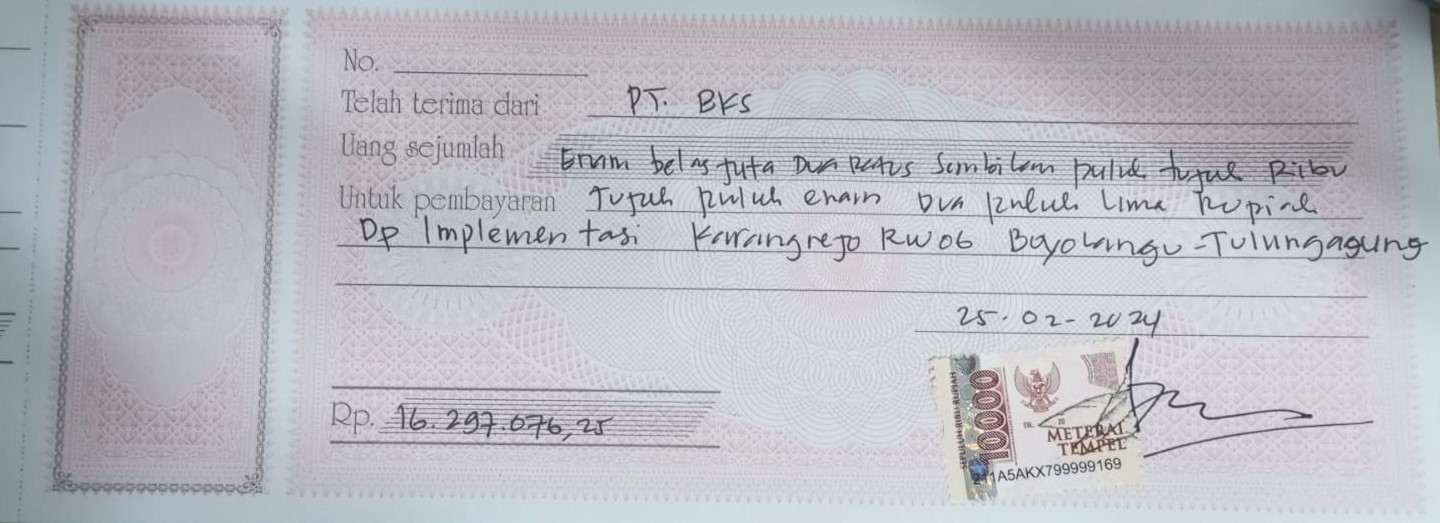 No.
Telah terima dari PT. BKS
Uang sejumlah Enam belas juta Dua Ratus Sembilan puluh tujuh Ribu
Untuk pembayaran Tujuh puluh enam Dua puluh Lima Rupiah
Dp Implementasi Karangrejo RW06 Boyolangu-Tulungagung
25-02-2024
Rp. 16.297.076,25
SEPULUH RIBU RUPIAH
10000
METERAI
TEMPEL
211A5AKX799999169